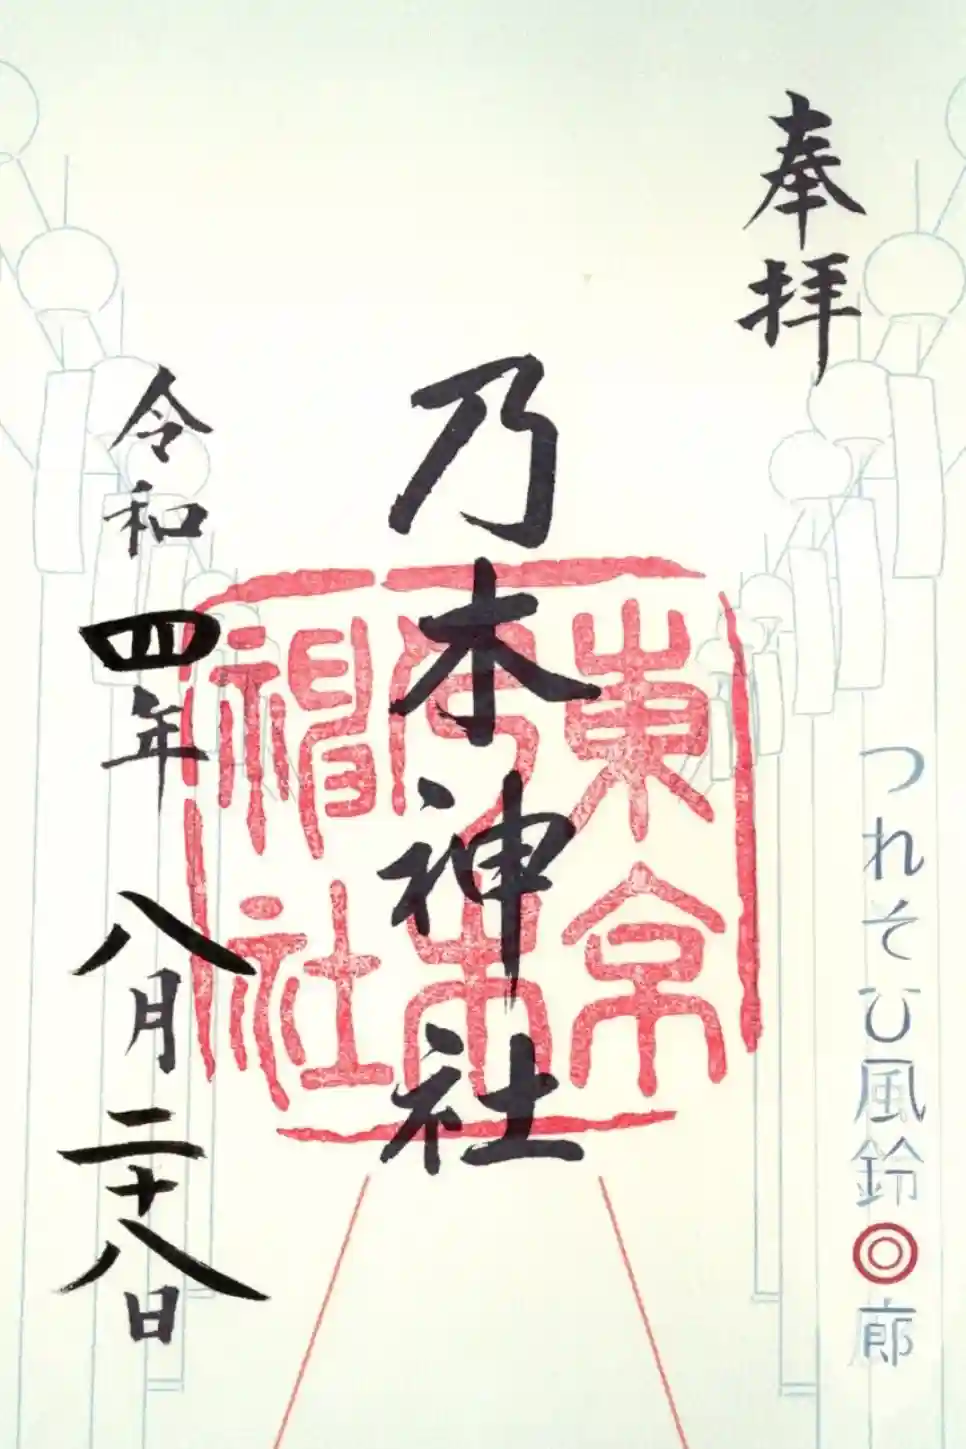 奉拝
つれそひ風鈴◎廊
乃木神社
東京
乃木
神社
令和四年八月二十八日